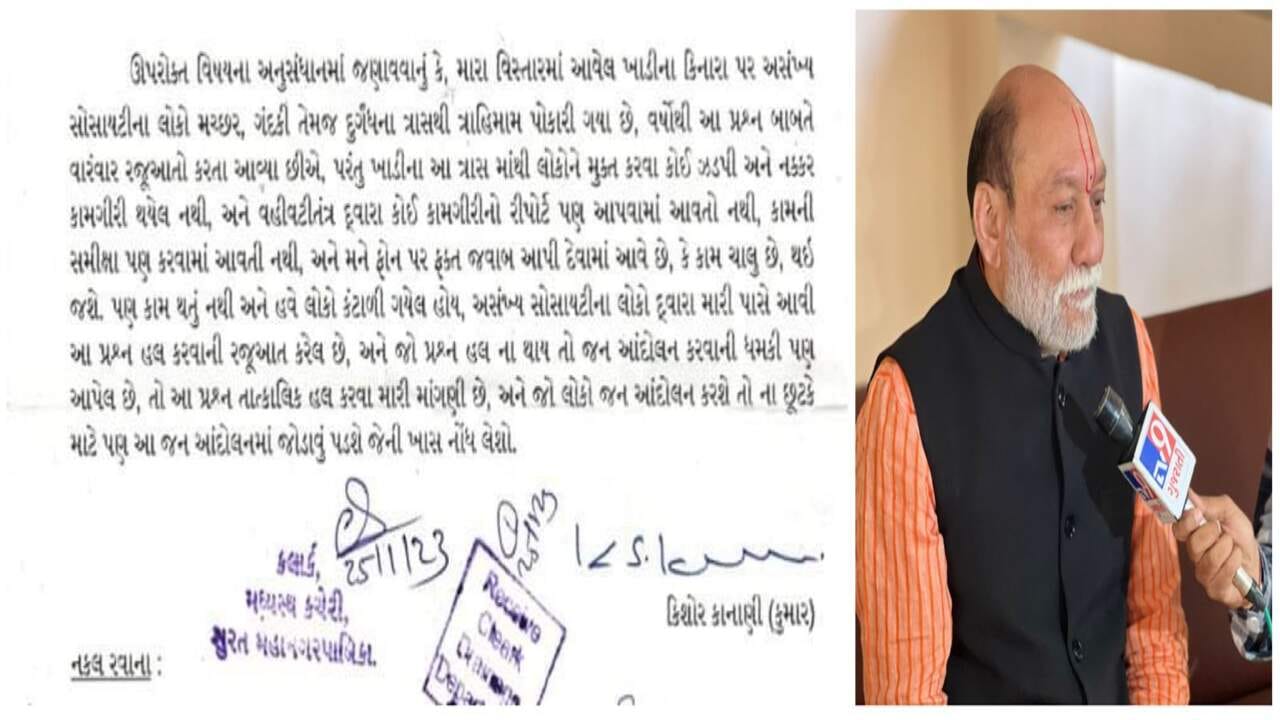 ઊપરોક્ત વિષયના અનુસંધાનમાં જણાવવાનું કે, મારા વિસ્તારમાં આવેલ ખાડીના કિનારા પર અસંખ્ય
સોસાયટીના લોકો મચ્છર, ગંદકી તેમજ દુર્ગંધના ત્રાસથી ત્રાહિમામ પોકારી ગયા છે, વર્ષોથી આ પ્રશ્ન બાબતે
વારંવાર રજૂઆતો કરતા આવ્યા છીએ, પરંતુ ખાડીના આ ત્રાસ માંથી લોકોને મુક્ત કરવા કોઈ ઝડપી અને નક્કર
કામગીરી થયેલ નથી, અને વહીવટીતંત્ર દ્વારા કોઈ કામગીરીનો રીપોર્ટ પણ આપવામાં આવતો નથી, કામની
સમીક્ષા પણ કરવામાં આવતી નથી, અને મને ફોન પર ફક્ત જવાબ આપી દેવામાં આવે છે, કે કામ ચાલુ છે, થઇ
જશે. પણ કામ થતું નથી અને હવે લોકો કંટાળી ગયેલ હોય, અસંખ્ય સોસાયટીના લોકો દ્વારા મારી પાસે આવી
આ પ્રશ્ન હલ કરવાની રજૂઆત કરેલ છે, અને જો પ્રશ્ન હલ ના થાય તો જન આંદોલન કરવાની ધમકી પણ
આપેલ છે, તો આ પ્રશ્ન તાત્કાલિક હલ કરવા મારી માંગણી છે, અને જો લોકો જન આંદોલન કરશે તો ના છૂટકે
માટે પણ આ જન આંદોલનમાં જોડાવું પડશે જેની ખાસ નોંધ લેશો.
25/1/23
કલાર્ક,
મધ્યસ્થ કચેરી,
સુરત મહાનગરપાલિકા.
Receive
Clerk
Drainage
K S. Kumar
કિશોર કાનાણી (કુમાર)
નકલ રવાના :
TV9
ગુજરાતી